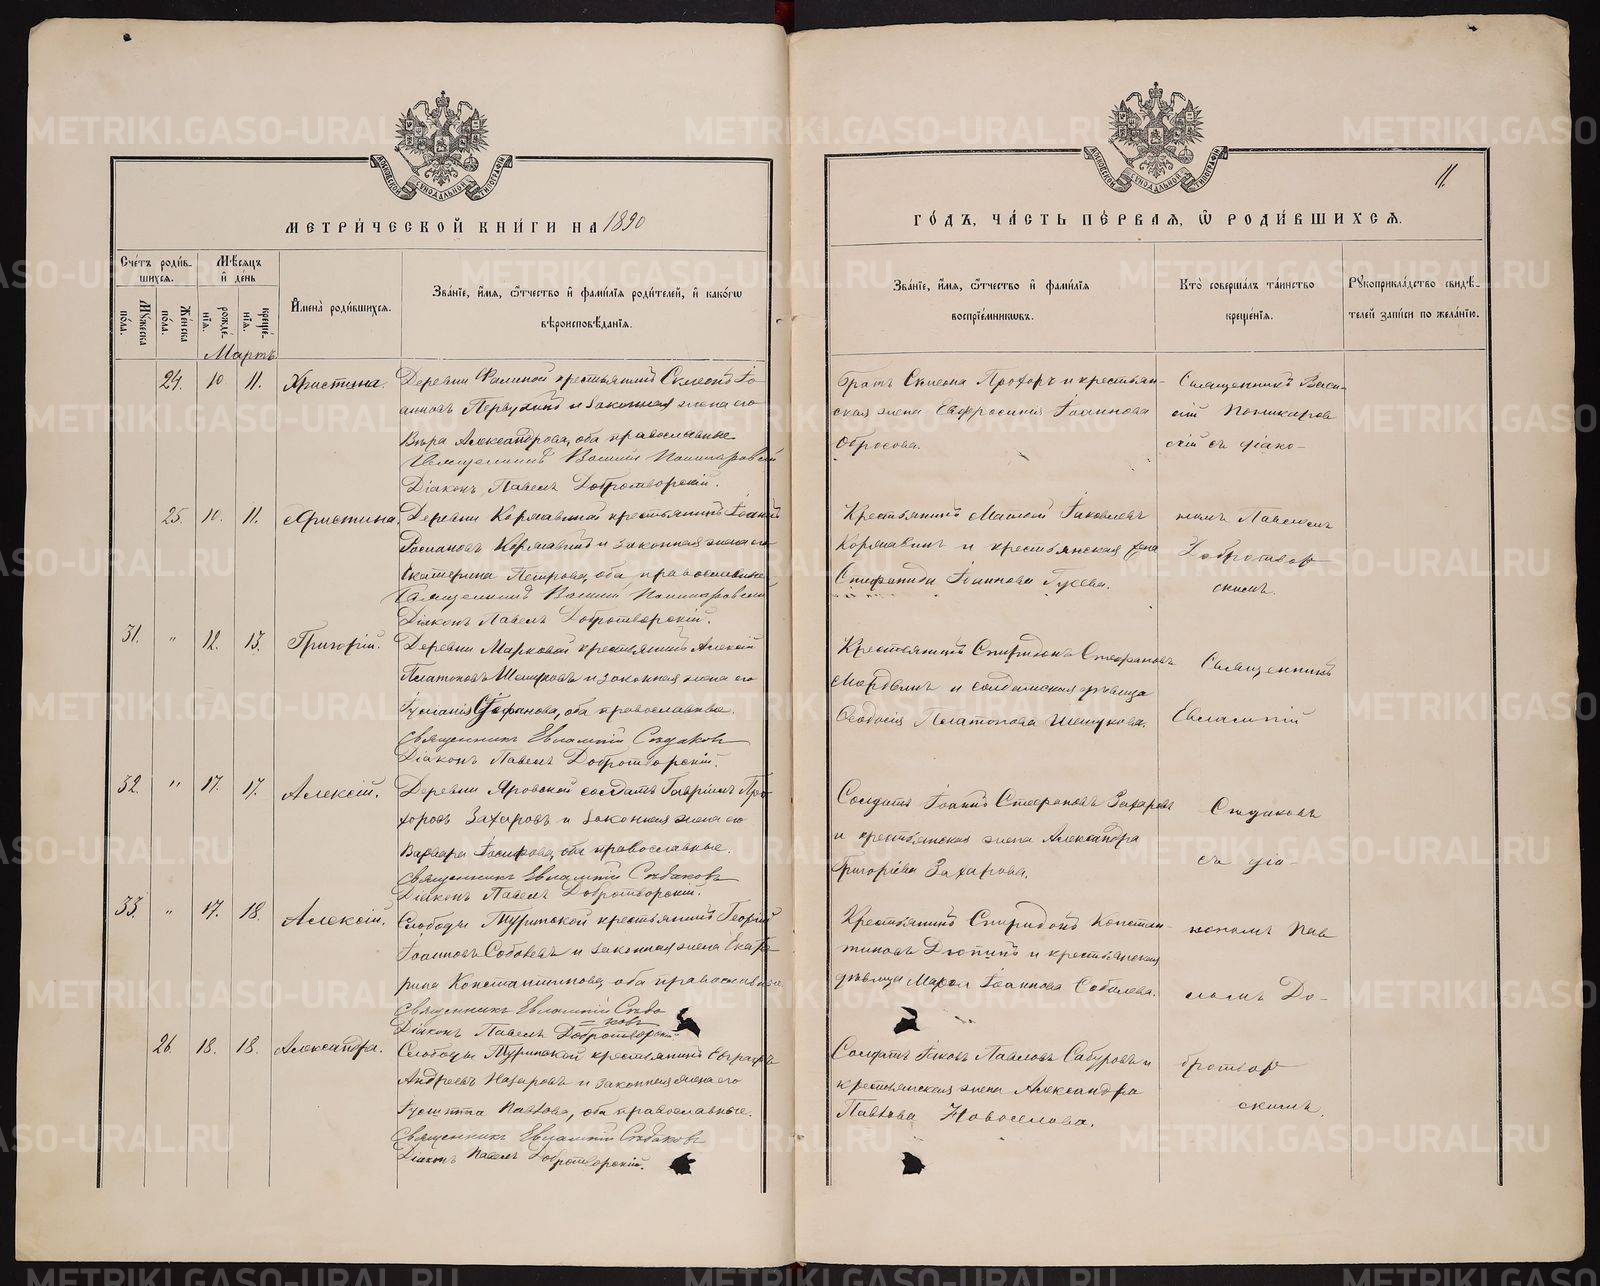 МЕТРИ́ЧЕСКОЙ КНИ́ГИ НА 1890
Сче́тъ роди́в-
шихсѧ.
Мꙋ́жеска
по́ла.
Же́нска
по́ла.
Мѣ́сѧцъ
и҆ де́нь
рожде́-
нїѧ.
креще́-
нїѧ.
И҆мена̀ роди́вшихсѧ.
Зва́нїе, и҆́мѧ, ѻ҆́тчество и҆ фами́лїѧ роди́телей, и҆ како́гѡ
вѣроисповѣ́данїѧ.
Мартъ
24. 10 11. Христина.
Деревни крестьянинъ Симеонъ Іо-
анновъ и законная жена его
Вѣра Александрова, оба православные.
Священникъ Василій
Діаконъ Павелъ Добротворскій.
25. 10. 11. Христина.
Деревни Кормавиной крестьянинъ Іоаннъ
Кормавинъ и законная жена его
Екатерина Петрова, оба православные
Священникъ Василій
Діаконъ Павелъ Добротворскій.
31. " 12. 13. Григорій.
Деревни Марковой крестьянинъ Алексій
Платоновъ и законная жена его
Стефанова, оба православные.
Священникъ Евлампій Сѣдаковъ
Діаконъ Павелъ Добротворскій.
32. " 17. 17. Алексій.
Деревни Яровской солдатъ Гавріилъ Про-
хоровъ Захаровъ и законная жена его
Варвара, оба православные.
Священникъ Евлампій Сѣдаковъ
Діаконъ Павелъ Добротворскій.
33. " 17. 18. Алексій.
Слободы Туринской крестьянинъ Георгій
Іоанновъ Соболевъ и законная жена Екате-
рина Константинова, оба православные
Священникъ Евлампій Сѣда
= ковъ
Діаконъ Павелъ Добротворскій
26. 18. 18. Александра.
Слободы Туринской крестьянинъ Евграфъ
Андреевъ Назаровъ и законная жена его
Павлова, оба православные.
Священникъ Евлампій Сѣдаковъ
Діаконъ Павелъ Добротворскій.
11.
ГО́ДЪ, ЧА́СТЬ ПЕ́РВАЯ, Ѽ РОДИ́ВШИХСѦ.
Зва́нїе, и҆́мѧ, ѻ҆́тчество и҆ фами́лїѧ
воспрїе́мникѡвъ.
Кто̀ соверша́лъ та́инство
креще́нїѧ.
Рꙋкоприкла́дство свидѣ́-
телей за́писи по жела́нїю.
Братъ Симеона Прохоръ и крестьян-
ская жена Евфросинія Іоаннова
Обросова.
Священникъ Васи-
лій
скій съ діако-
Крестьянинъ Матѳей Іаковлевъ
Кормавинъ и крестьянская жена
Стефанида Іоаннова Гусева.
номъ Павломъ
Добротвор
скимъ.
Крестьянинъ Спиридонъ Стефановъ
Мордвинъ и солдатская дѣвица
Ѳеодосія Платонова
Священникъ
Евлампій
Солдатъ Іоаннъ Стефановъ Захаровъ
и крестьянская жена Александра
Григоріева Захарова.
Сѣдаковъ
съ діа-
Крестьянинъ Спиридонъ Констан-
тиновъ и крестьянская
дѣвица Марѳа Іоаннова Соболева.
кономъ Пав
ломъ До-
Солдатъ Іаковъ Павловъ Сабуровъ и
крестьянская жена Александра
Павлова Новоселова.
бротвор
скимъ.
METRIKI.GASO-URAL.RU